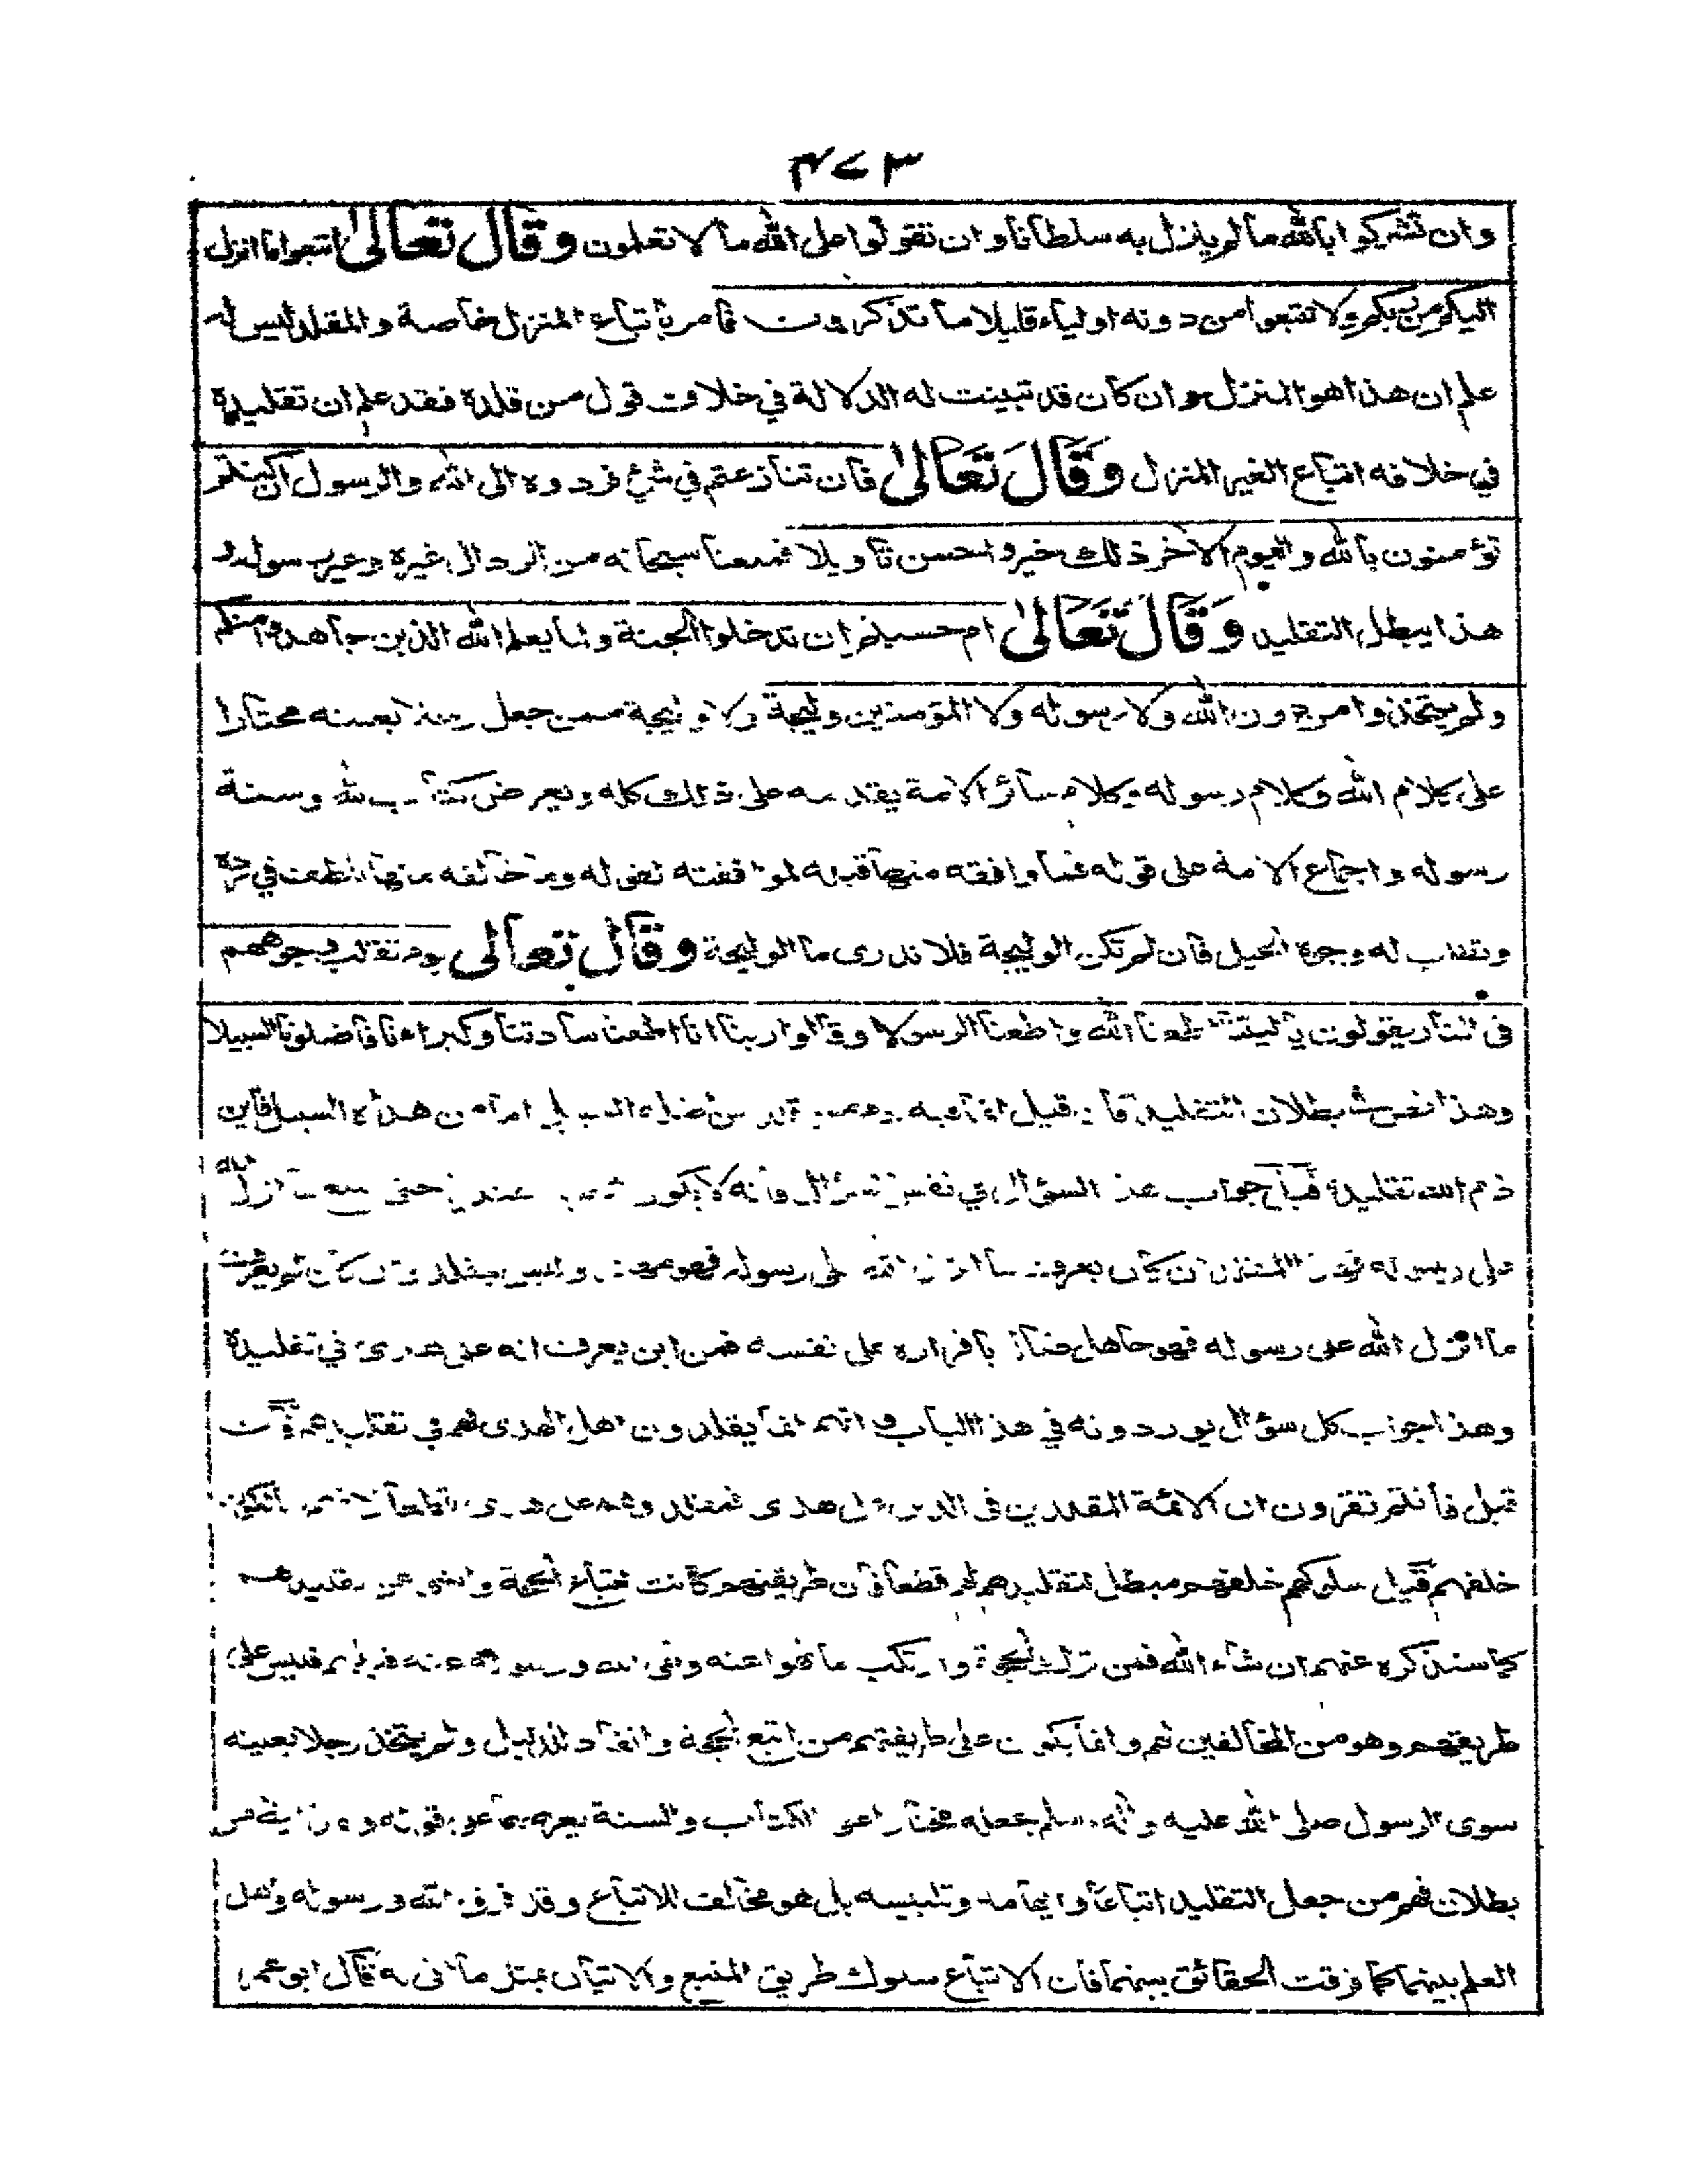 ٣٧٤
وان تشركوا بالله ما لم ينزل به سلطانا وان تقولوا على الله ما لا تعلمون وقال تعالى اتبعوا ما انزل
اليكم من ربكم ولا تتبعوا من دونه اولياء قليلا ما تذكرون فامر باتباع المنزل خاصة والمقلد ليس له
علم ان هذا هو المنزل وان كان قد تبينت له الدلالة في خلاف قول من قلده فقد علم ان تقليده
في خلافه اتباع الغير المنزل وقال تعالى فان تنازعتم في شئ فردوه الى الله والرسول ان كنتم
تؤمنون بالله واليوم الاخر ذلك خير واحسن تاويلا فمنعنا سبحانه من الرد الى غيره وغير رسوله و
هذا يبطل التقليد وقال تعالى ام حسبتم ان تدخلوا الجنة ولما يعلم الله الذين جاهدوا منكم
ولم يتخذوا من دون الله ولا رسوله ولا المؤمنين وليجة ولا وليجة ممن جعل رجلا بعينه مختارا
على كلام الله وكلام رسوله وكلام سائر الامة يقدمه على ذلك كله ويعرض كتاب الله وسنة
رسوله واجماع الامة على قوله فما وافقه منها قبله لموافقته لقوله وما خالفه منها تلطف في رده
وتطلب له وجوه الحيل فان لم تكن الوليجة فلا ندرى ما الوليجة وقال تعالى يوم تقلب وجوههم
فى النار يقولون يا ليتنا اطعنا الله واطعنا الرسولا وقالوا ربنا انا اطعنا سادتنا وكبراءنا فاضلونا السبيلا
وهذا نص في بطلان التقليد فان قيل انما فيه من اضله السبيل اما من هداه السبيل فاين
ذم الله تقليده قيل جواب هذا السؤال في نفس السؤال فانه لا يكون حتى يتبع ما انزل الله
على رسوله فهذا المقلد ان كان يعرف ما انزل الله على رسوله فهو مهتد وليس بمقلد وان كان لم يعرف
ما انزل الله على رسوله فهو جاهل ضال باقراره على نفسه فمن اين يعرف انه على هدى في تقليده
وهذا جواب كل سؤال يوردونه في هذا الباب وانهم انما يقلدون اهل الهدى فهم في تقليدهم فان
قيل فانتم تقرون ان الائمة المقلدين فى الدين على هدى فمقلدوهم على هدى قطعا لانهم سالكون
خلفهم قيل سلوكهم خلفهم مبطل لتقليدهم لهم قطعا فان طريقتهم كانت اتباع الحجة والنهى عن تقليدهم
كما سنذكره عنهم ان شاء الله فمن ترك الحجة وارتكب ما نهوا عنه ونهى الله ورسوله عنه قبلهم فليس على
طريقتهم وهو من المخالفين لهم وانما يكون على طريقتهم من اتبع الحجة وانقاد للدليل ولم يتخذ رجلا بعينه
سوى الرسول صلى الله عليه وآله وسلم جعله مختارا على الكتاب والسنة يعرضهما على قوله وبهذا يظهر
بطلان فهم من جعل التقليد اتباعا وايهامه وتلبيسه بل هو مخالف للاتباع وقد فرق الله ورسوله واهل
العلم بينهما كما فرقت الحقائق بينهما فان الاتباع سلوك طريق المتبع والاتيان بمثل ما اتى به قال ابو عمر